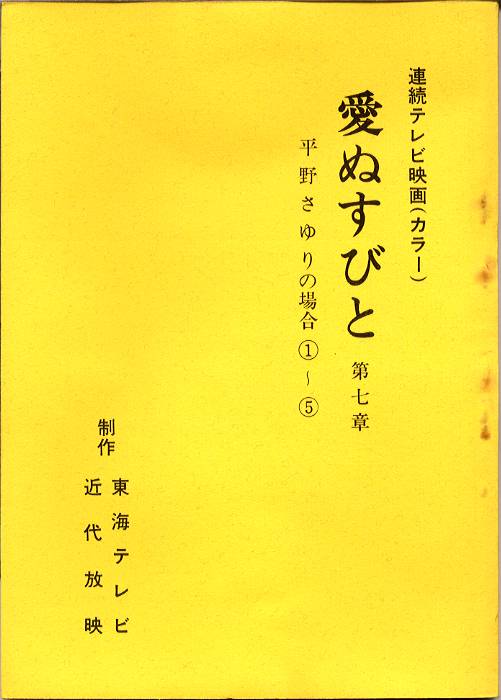 連続テレビ映画(カラー)
愛ぬすびと 第七章
平野さゆりの場合①~⑤
制作
東海テレビ
近代放映